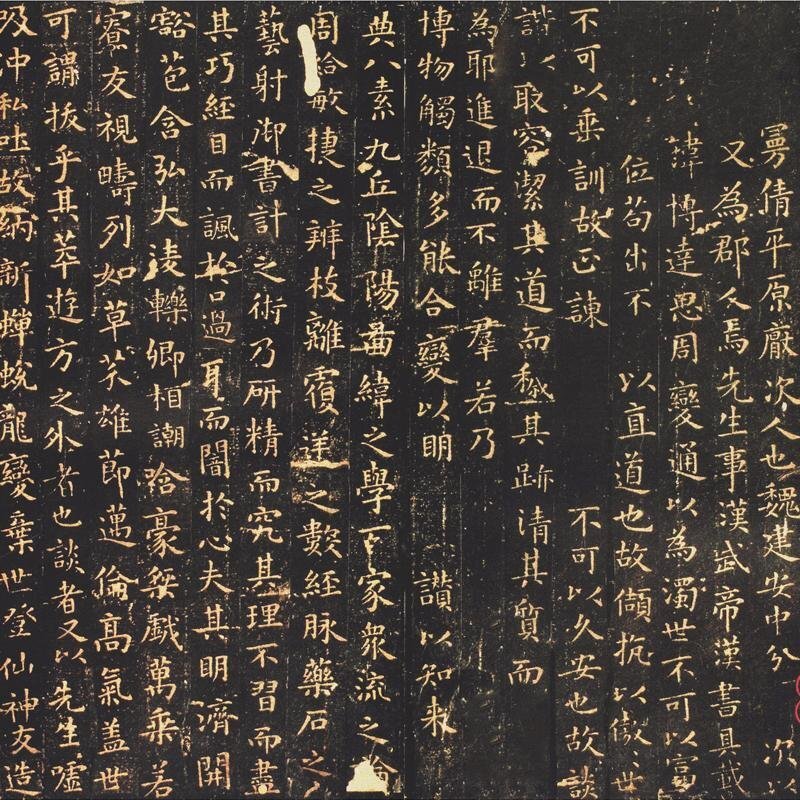 曼倩平原厭次人也魏建安中分次以
又為郡人焉先生事漢武帝漢書具載
瑋博達思周變通以為濁世不可以富
位苟出不以直道也故頡抗以傲世
不可以垂訓故正諫不可以久安也故談
諧以取容潔其道而穢其跡清其質而
為耶進退而不離羣若乃
博物觸類多能合變以明讚以知來
典八素九丘陰陽圖緯之學百家眾流之論
周給敏捷之辨枝離覆逆之數經脉藥石之
藝射御書計之術乃研精而究其理不習而盡
其巧經目而諷於口過耳而闇於心夫其明濟開
豁苞含弘大淩轢卿相謿哈豪桀戲萬乘若
寮友視疇列如草芥雄節邁倫高氣盖世
可謂拔乎其萃遊方之外者也談者又以先生噓
吸沖和吐故納新蟬蛻龍變棄世登仙神友造